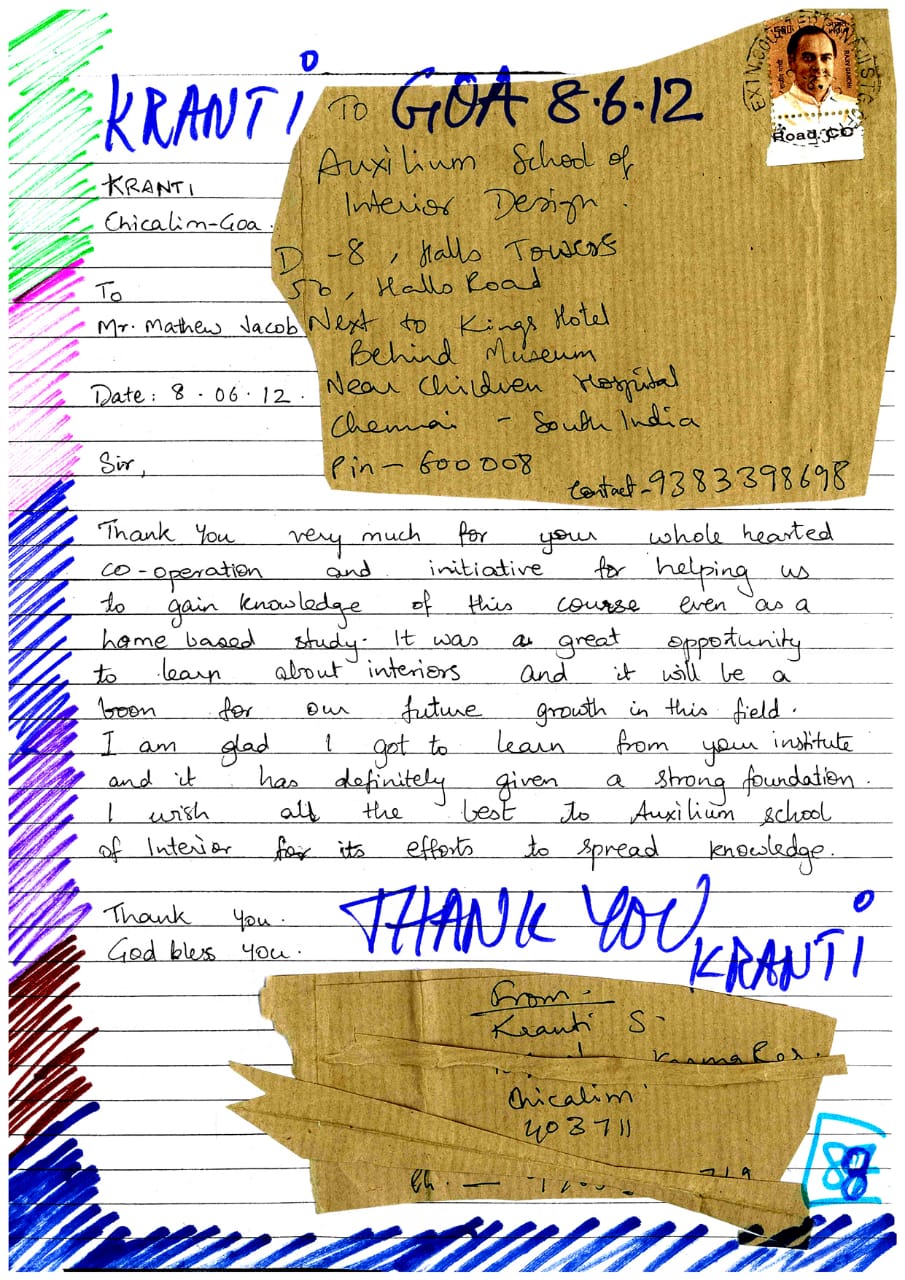 KRANTI
TO GOA 8.6.12
Auxilium School of
Interior Design.
D-8, Halls Towers
56, Halls Road
Next to Kings Hotel
Behind Museum
Near Children Hospital
Chennai - South India
Pin - 600 008
Contact - 9383398698
Road, CO
KRANTI
Chicalim-Goa.
To
Mr. Mathew Jacob
Date: 8.06.12.
Sir,
Thank You very much for your whole hearted
co-operation and initiative for helping us
to gain knowledge of this course even as a
home based study. It was a great opportunity
to learn about interiors and it will be a
boon for our future growth in this field.
I am glad I got to learn from your institute
and it has definitely given a strong foundation.
I wish all the best to Auxilium school
of Interior for its efforts to spread knowledge.
Thank You.
God bless You.
THANK YOU
KRANTI
From -
Kranti S.
Chicalim
403711
88